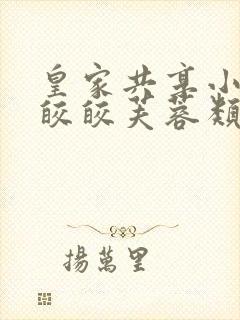 皇家共享小
皎皎芙蓉類
揚萬里